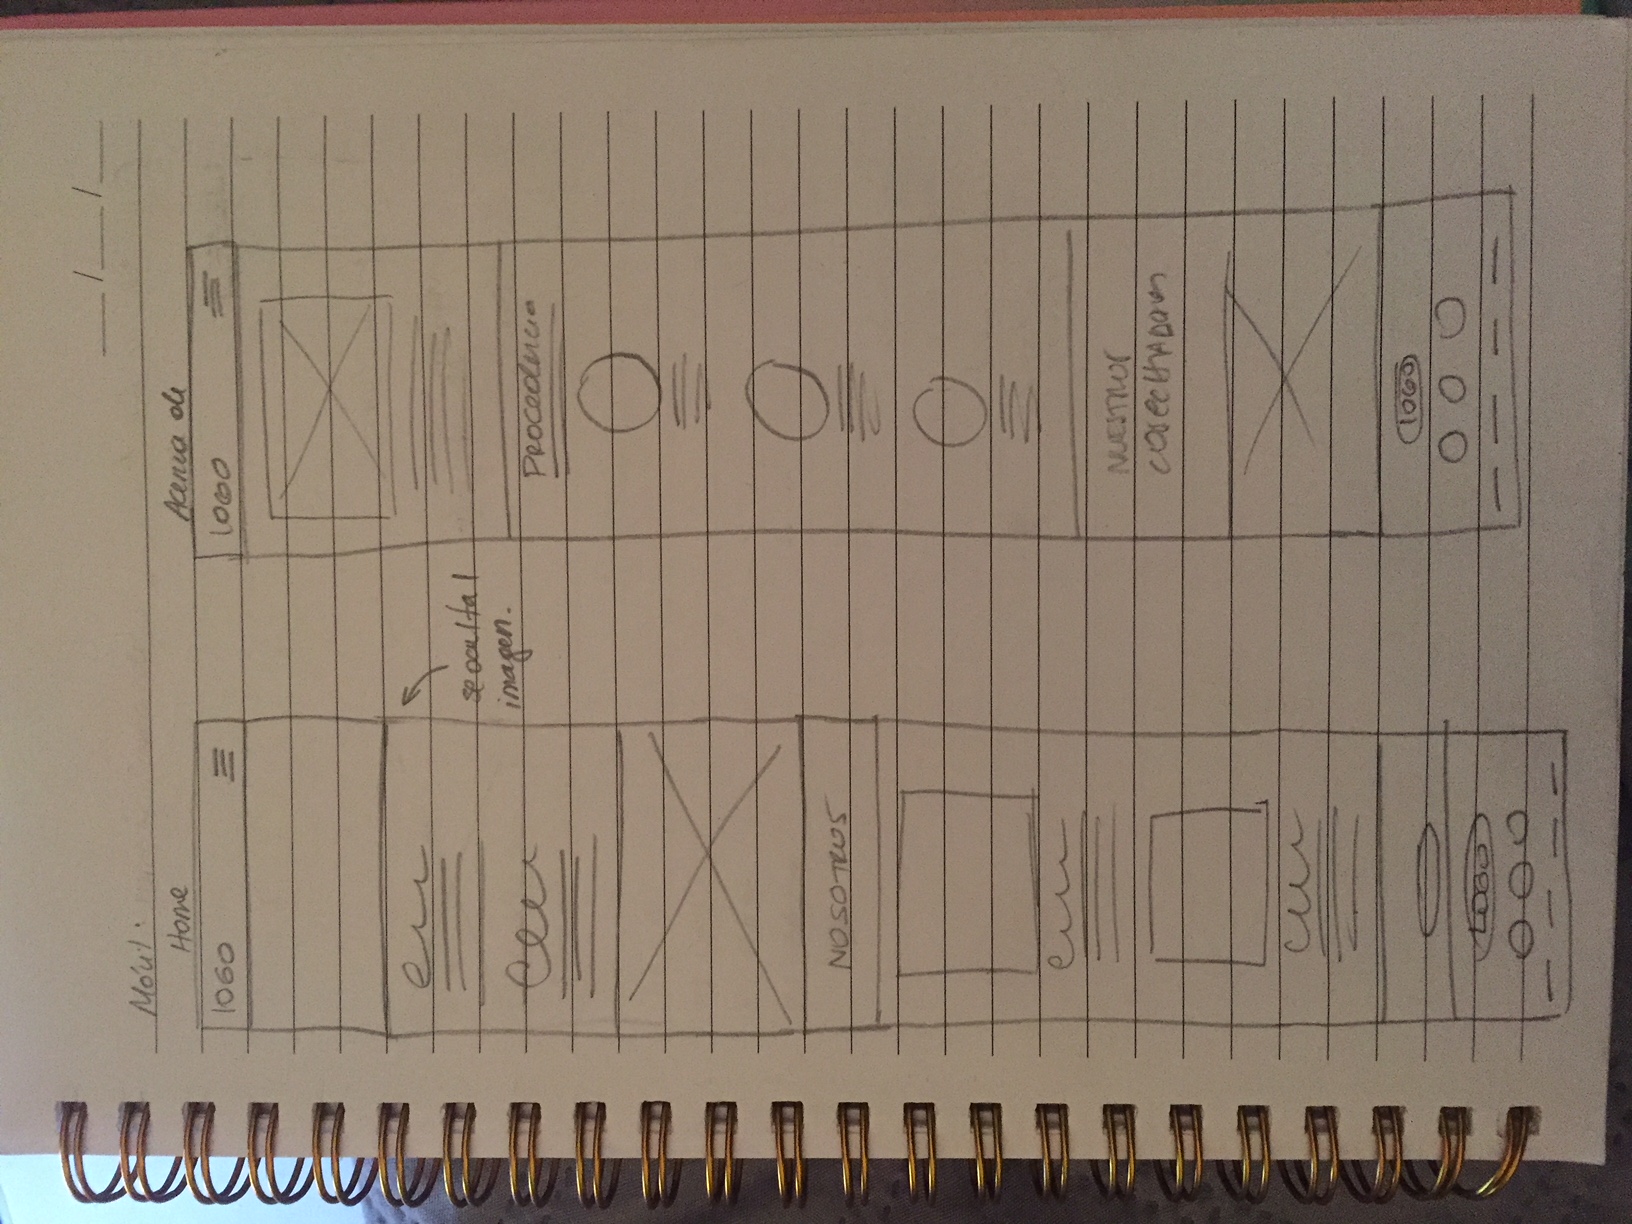 Móvil:
Home
LOGO
se oculta 1
imagen.
NOSOTROS
LOGO
Acerca de
LOGO
Procedencia
NUESTROS
COSECHADORES
LOGO